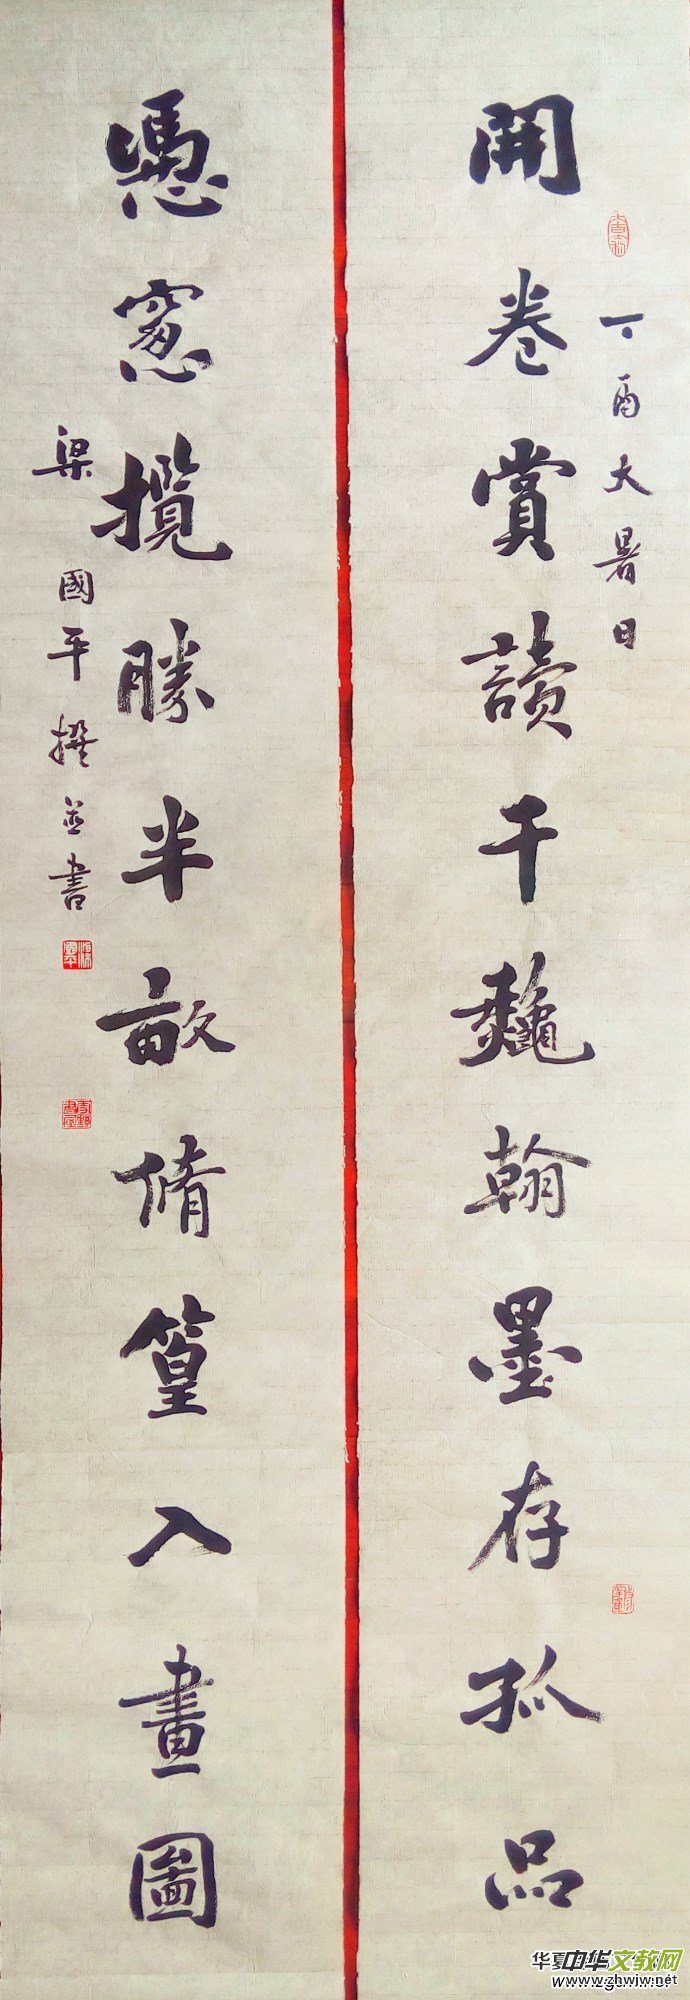 丁酉大暑日
開卷賞讀千龝翰墨存孤品
憑窻攬勝半畝脩篁入畫圖
梁國平撰並書
中华文教网
www.zhwjw.net